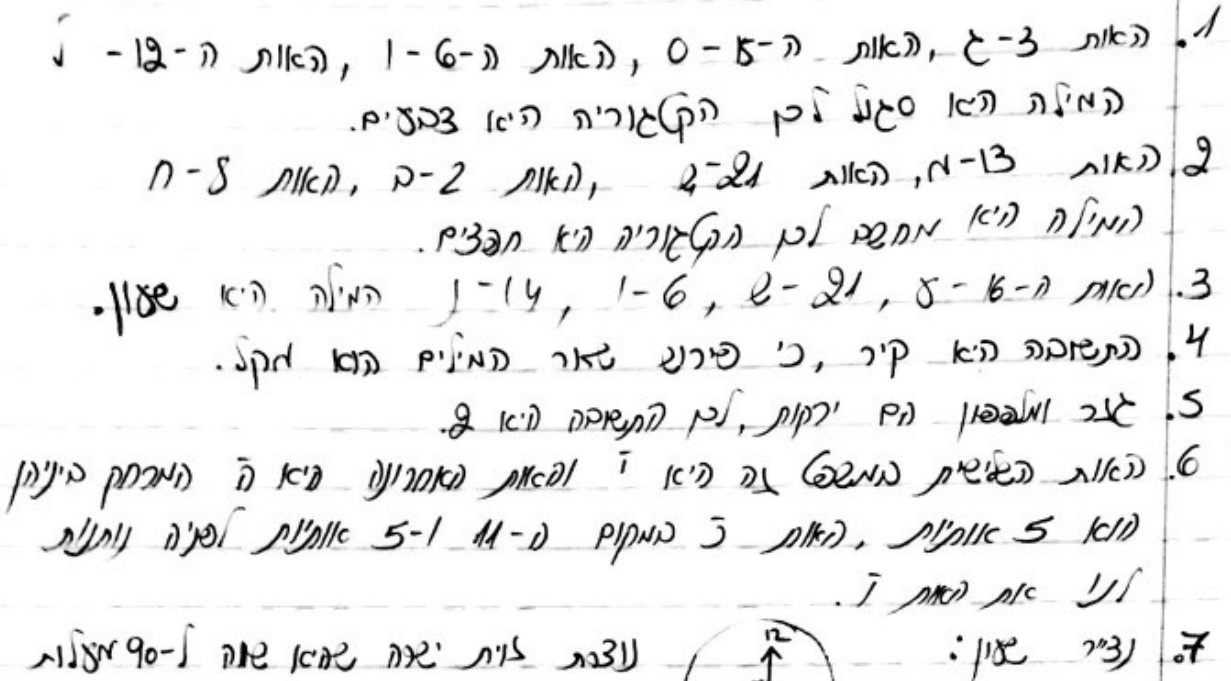 1. האות 3-ג, האות ה-15-ס, האות ה-6-ו, האות ה-12-ל
המילה היא סגול לכן הקטגוריה היא צבעים.
2. האות 13-מ, האות 21-ש, האות 2-ב, האות 8-ח
המילה היא מחשב לכן הקטגוריה היא חפצים.
3. האות ה-16-ע, 21-ש, 6-ו, 14-נ המילה היא שעון.
4. התשובה היא קיר, כי פירוש שאר המילים הוא מקל.
5. גזר ומלפפון הם ירקות, לכן התשובה היא 2.
6. האות השלישית במשפט זה היא ו והאות האחרונה היא ה המרחק ביניהן
הוא 5 אותיות, האות כ במקום ה-11 ו-5 אותיות לפניה נותנות
לנו את האות ו.
7. נצייר שעון: 12 נוצרת זוית ישרה שהיא שווה ל-90 מעלות